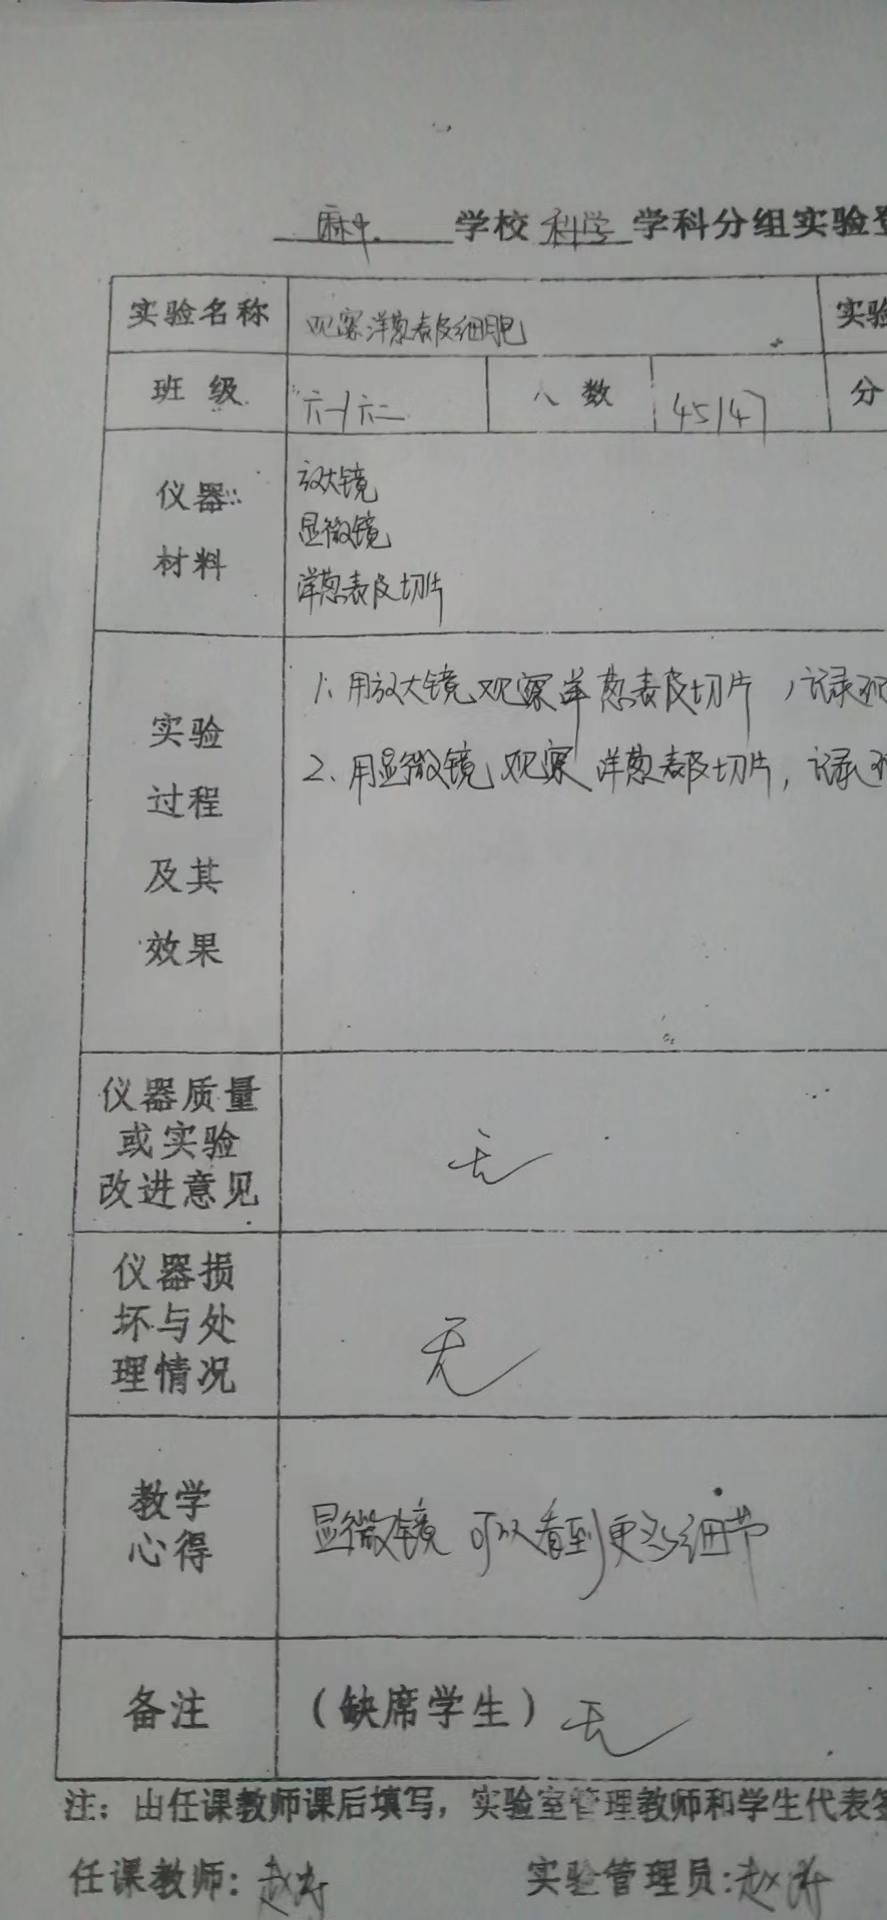 麻中 学校 科学 学科分组实验登
实验名称 观察洋葱表皮细胞 实验
班级 六一/六二 人数 45/47 分
仪器 材料
放大镜
显微镜
洋葱表皮切片
实验 过程 及其 效果
1、用放大镜观察洋葱表皮切片,记录
2、用显微镜观察洋葱表皮切片,记录
仪器质量
或实验
改进意见
无
仪器损
坏与处
理情况
无
教学
心得
显微镜可以看到更多细节
备注 (缺席学生) 无
注:由任课教师课后填写,实验室管理教师和学生代表签
任课教师:赵 实验管理员:赵